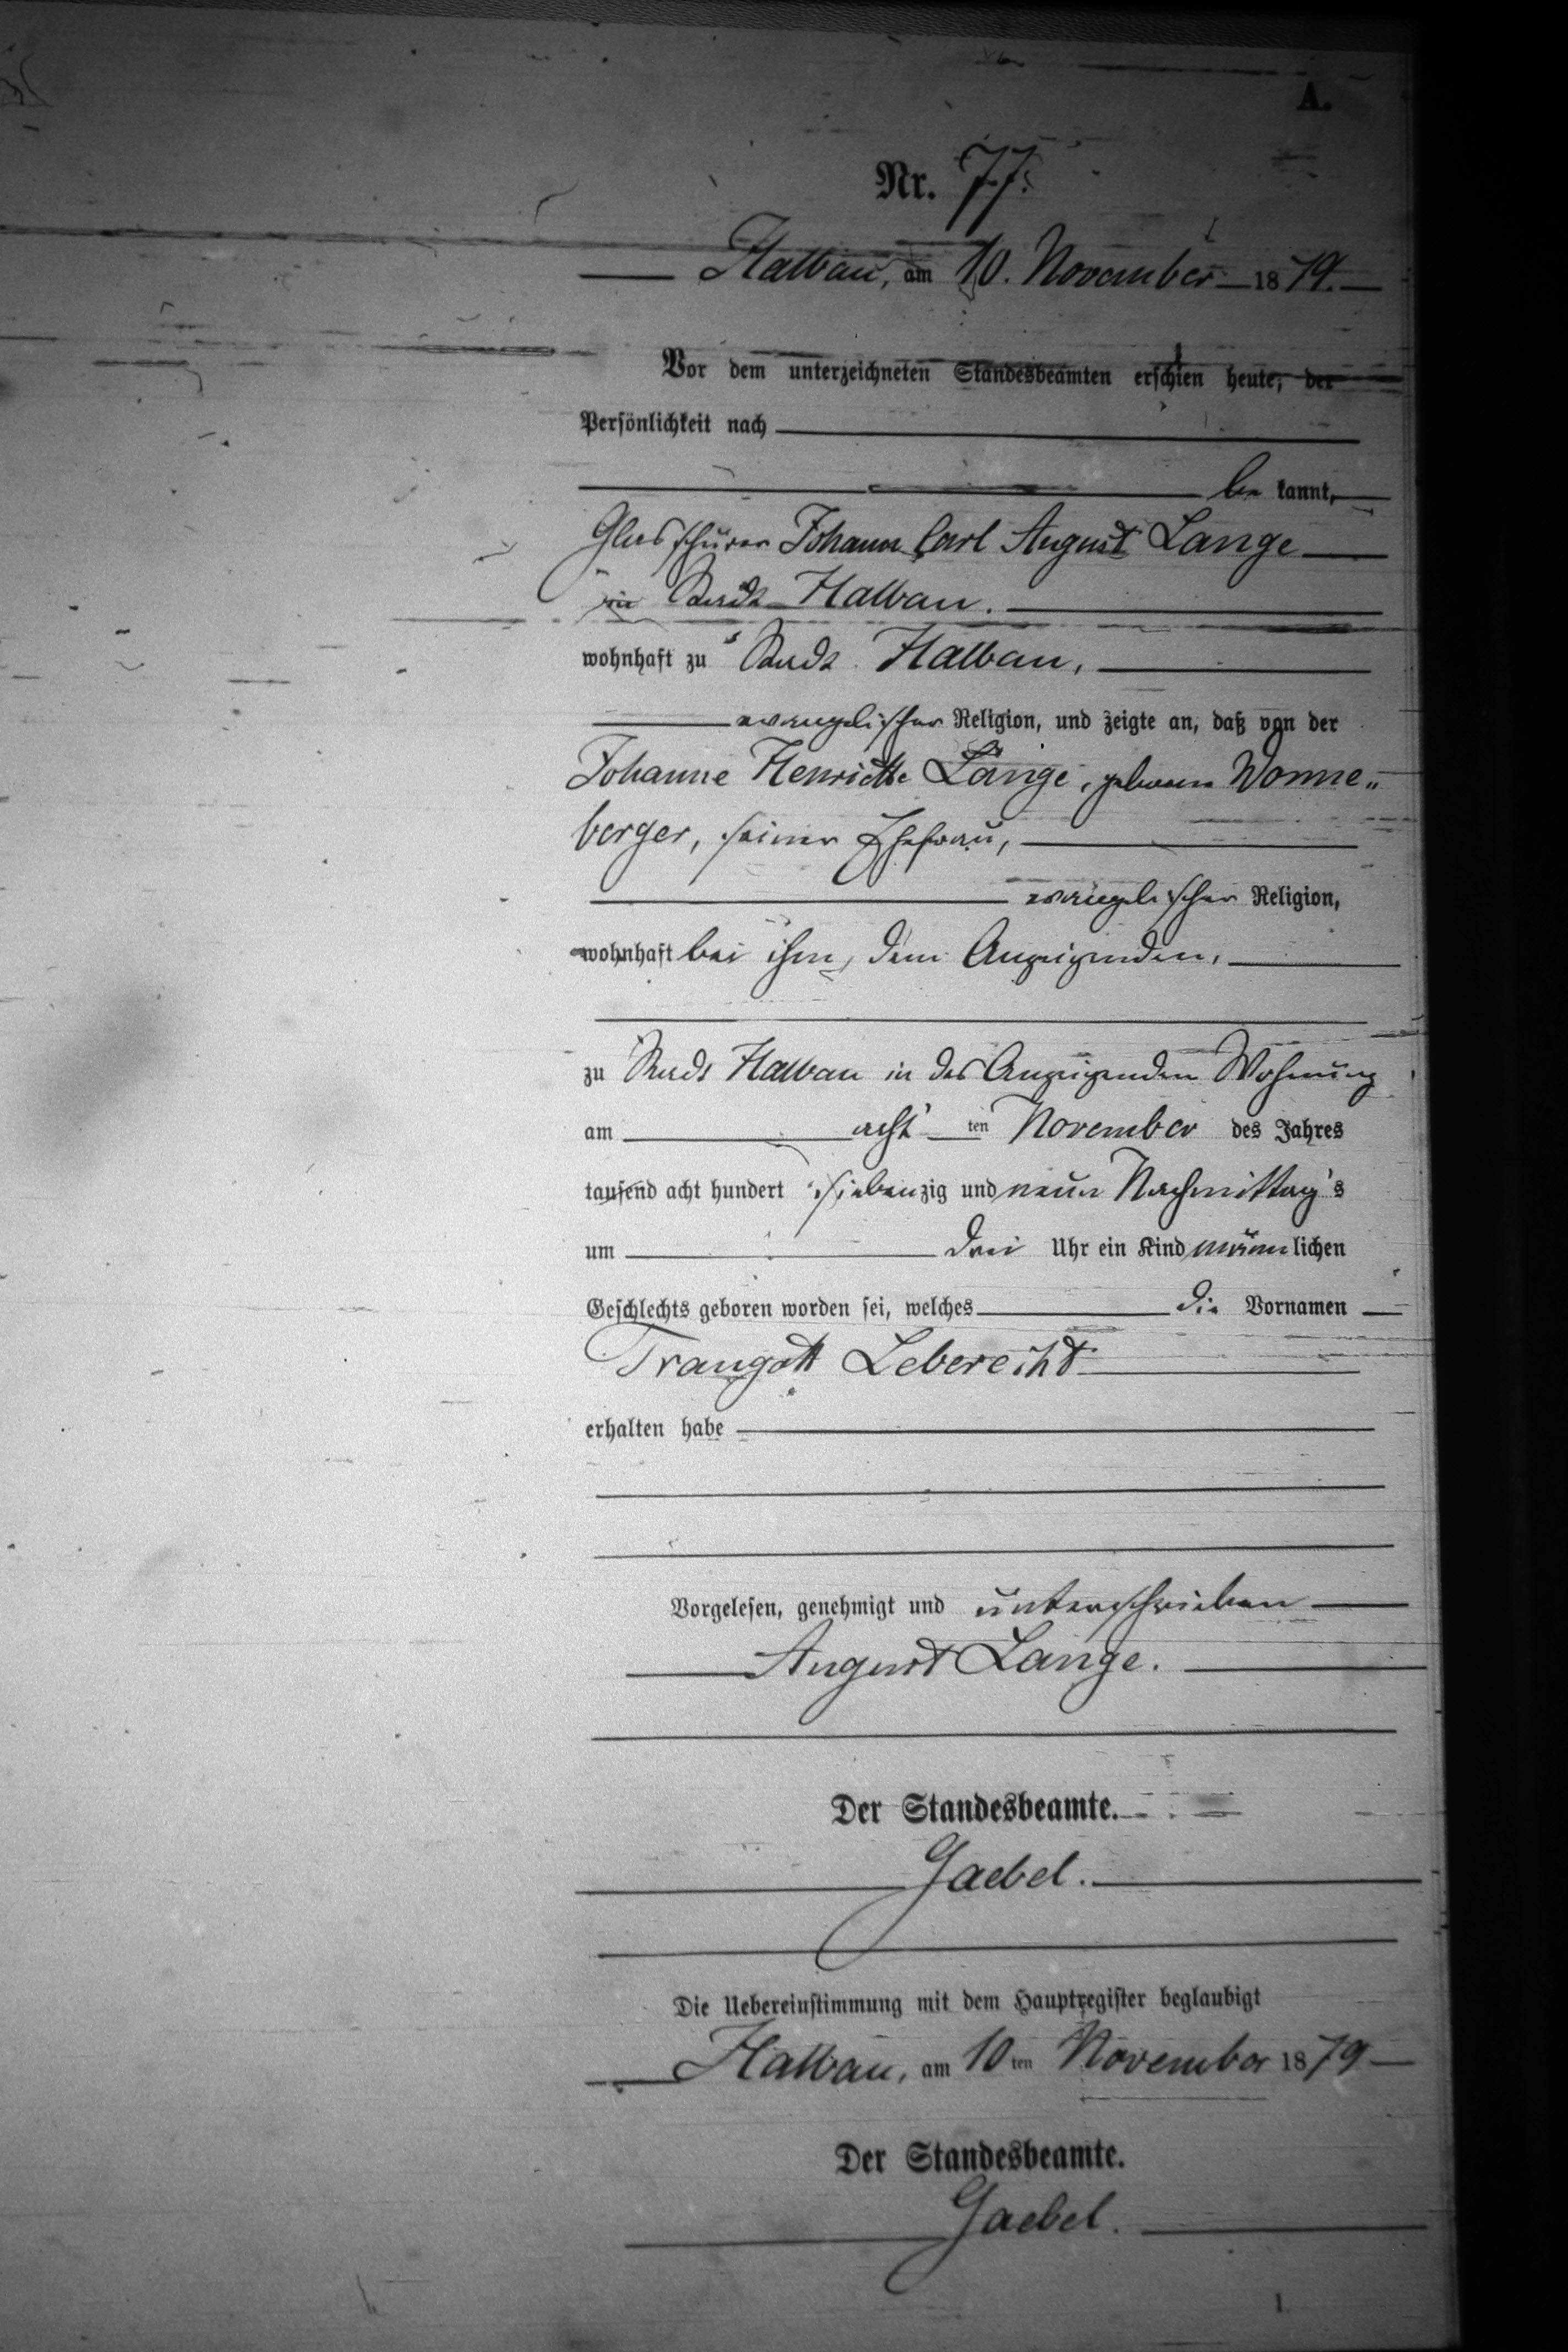 A.
Nr. 77.
Halbau, am 10. November 1879.
Vor dem unterzeichneten Standesbeamten erschien heute, der
Persönlichkeit nach
be kannt,
Glasschürer Johann Carl August Lange
in Halbau.
wohnhaft zu Halbau,
evangelischer Religion, und zeigte an, daß von der
Johanne Henriette Lange, geborene Wonne„
berger, seiner Ehefrau,
evangelischer Religion,
wohnhaft bei ihm, dem Anzeigenden,
zu Halbau in des Anzeigenden Wohnung
am acht ten November des Jahres
tausend acht hundert siebenzig und neun Nachmittag's
um drei Uhr ein Kind männlichen
Geschlechts geboren worden sei, welches die Vornamen
Traugott Leberecht
erhalten habe
Vorgelesen, genehmigt und unterschrieben
August Lange.
Der Standesbeamte.
Gaebel.
Die Uebereinstimmung mit dem Hauptregister beglaubigt
Halbau, am 10 ten November 1879
Der Standesbeamte.
Gaebel.